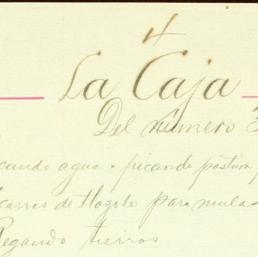 4
La Caja
Del número 3
cando agua & picando pastura p
carros de tlazole para mulas
Regando tierras